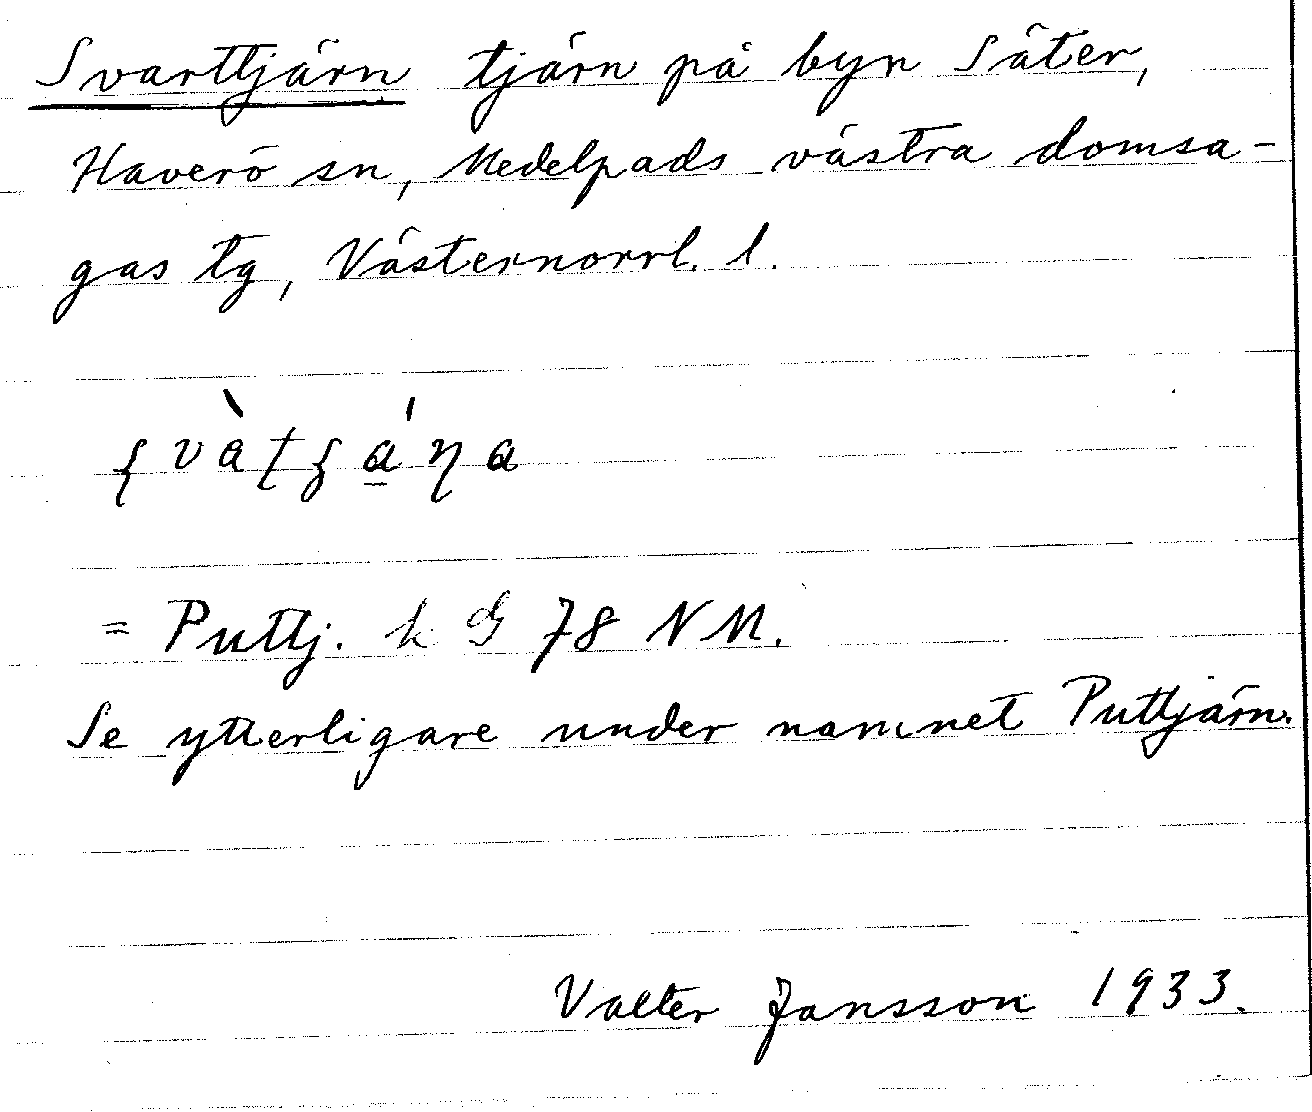 Svarttjärn tjärn på byn Säter,
Haverö sn, Medelpads västra domsa-
gas tg, Västernorrl. l.
= Puttj. k G 78 NM.
Se ytterligare under namnet Puttjärn.
Valter Jansson 1933.